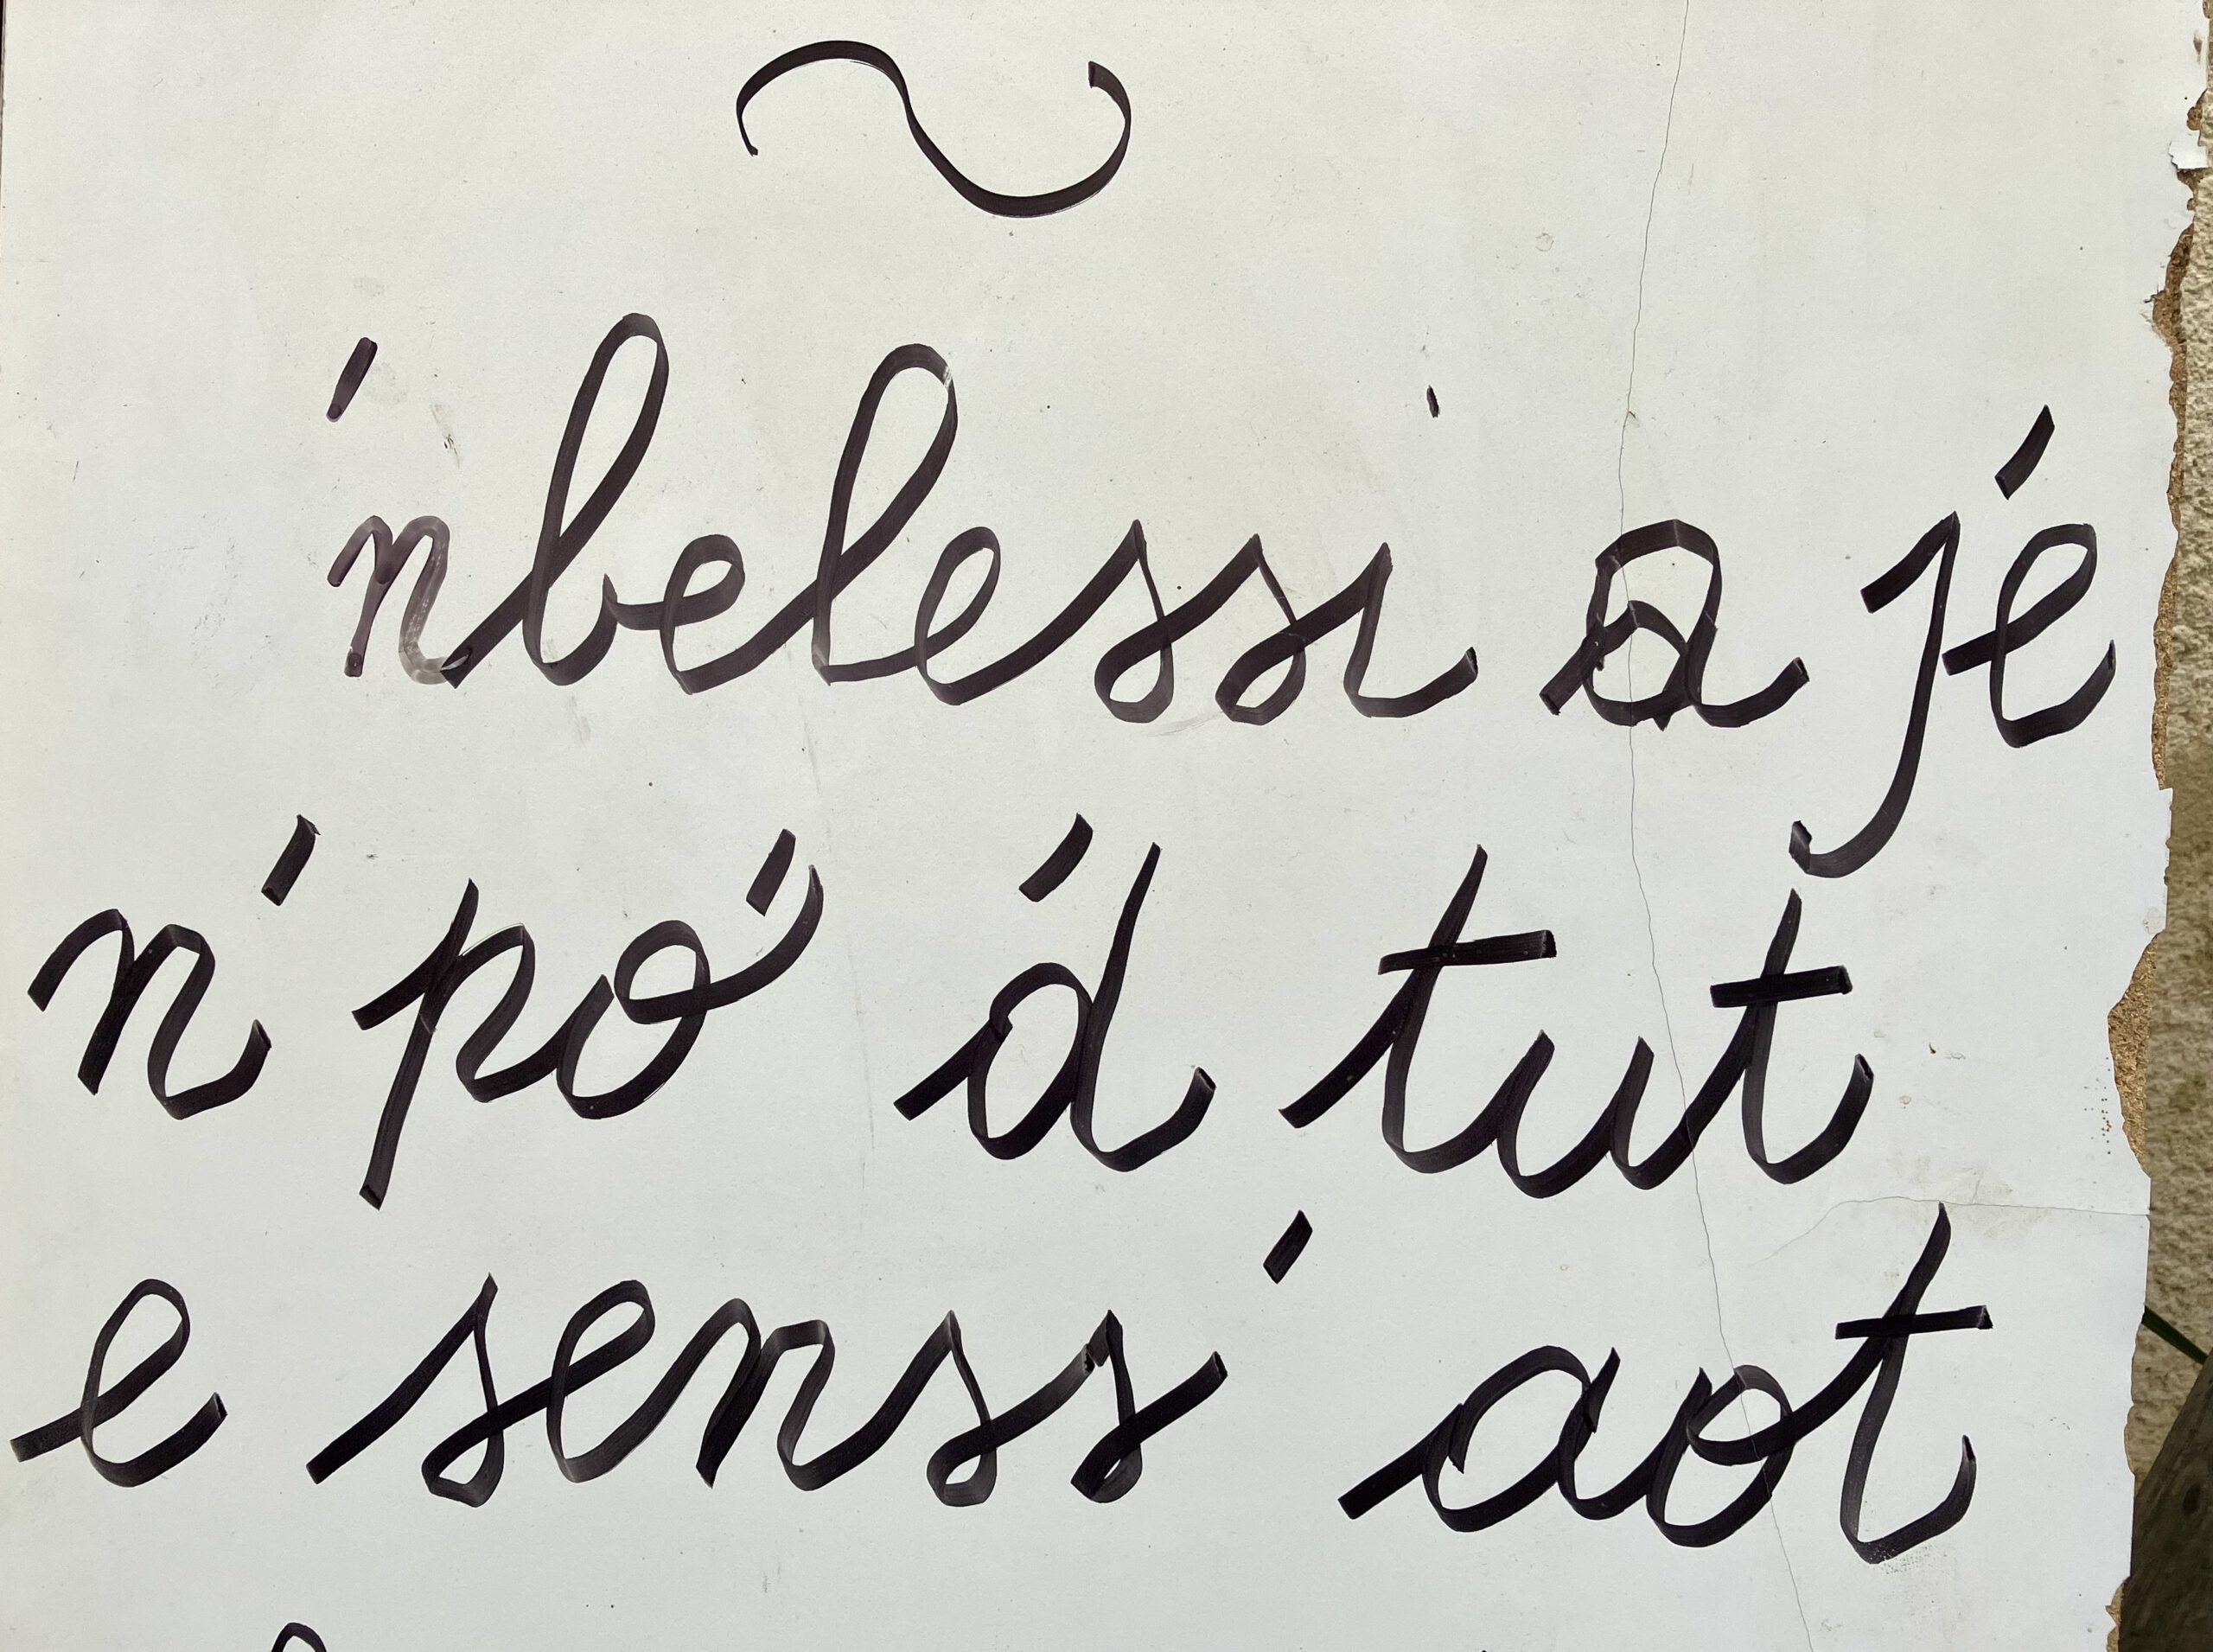 ~
'nbelessi a jé
n' po' 'd tut
e senss' aot